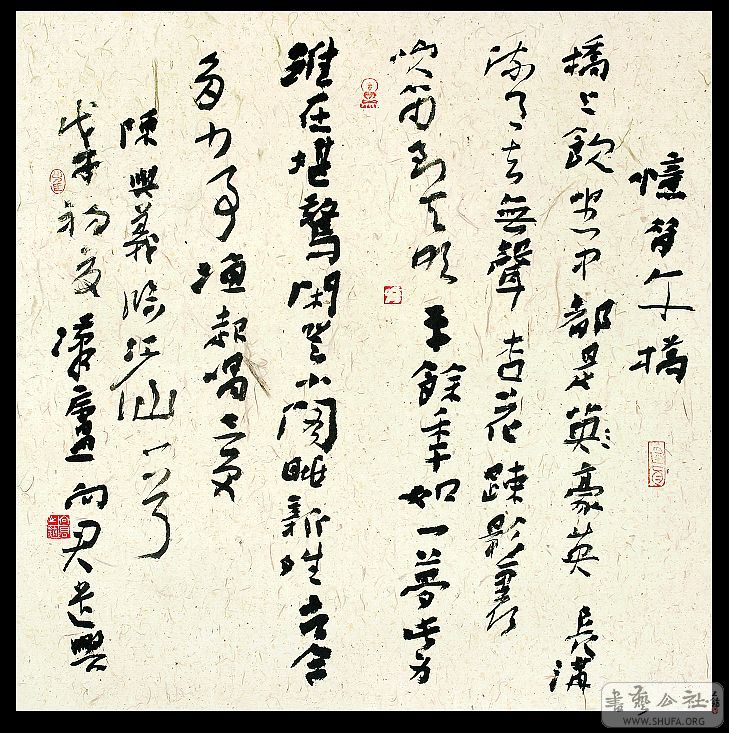 憶昔午橋
橋上飲坐中都是英豪英長溝
流月去無聲杏花疎影裏
吹笛到天明二十餘季如一夢此身
雖在堪驚閑登小閣眺新晴古今
多少事漁起唱三更
陳與義臨江仙一首
戊初夏廬向君遣興
書藝公社
WWW.SHUFA.ORG